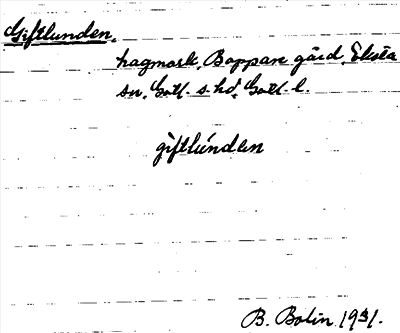 Giftlunden.
hagmark, Boppare gård, Eksta
sn, Gotl. s. hd, Gotl. l.
gìftlúnden
B. Bolin 1931.